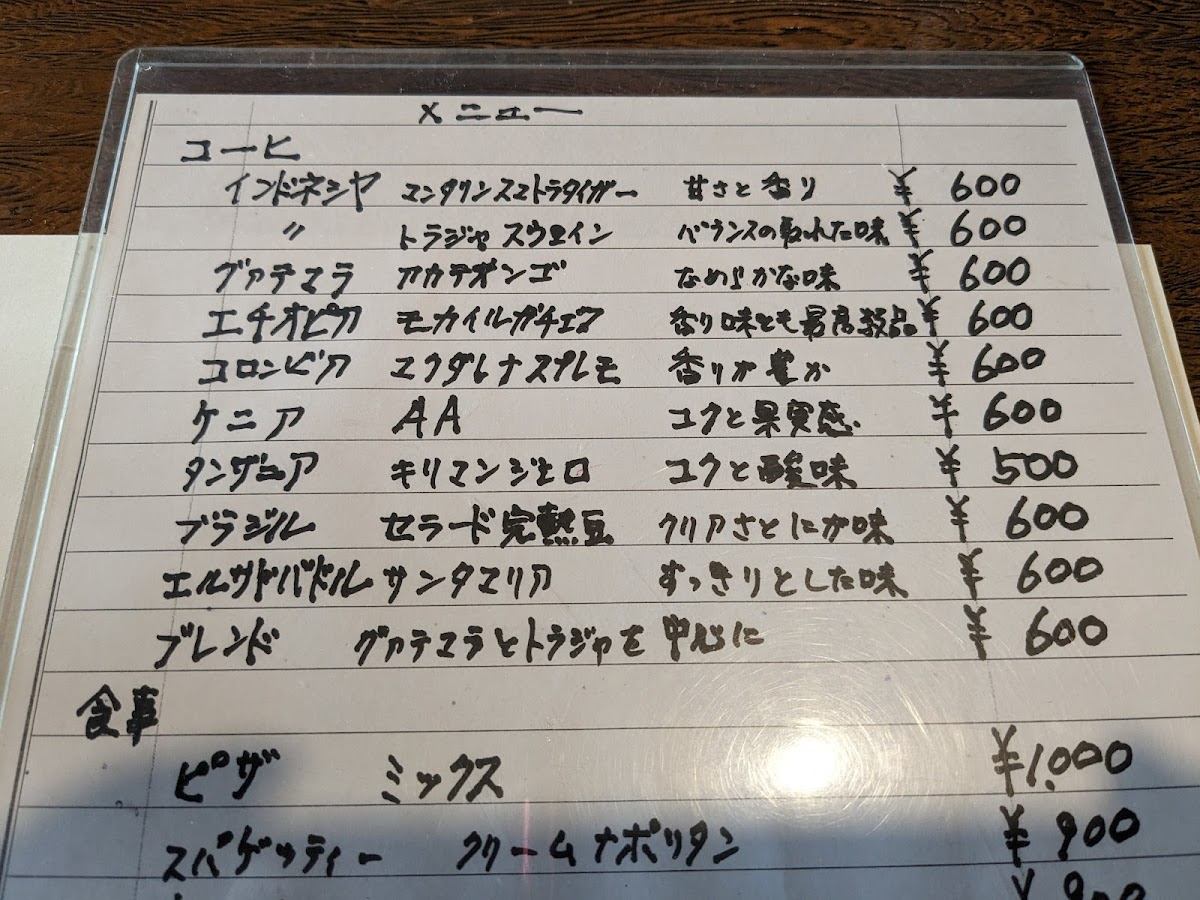 メニュー
コーヒ
インドネシヤ マンダリンスマトラタイガー 甘さと香り ¥600
〃 トラジャスウェイン バランスの取れた味 ¥600
グァテマラ アカテナンゴ なめらかな味 ¥600
エチオピア モカイルガチェフ 香り味とも最高級品 ¥600
コロンビア マグダレナスプレモ 香りが豊か ¥600
ケニア AA コクと果実感 ¥600
タンザニア キリマンジェロ コクと酸味 ¥500
ブラジル セラード完熟豆 クリアさとにが味 ¥600
エルサドバドル サンタマリア すっきりとした味 ¥600
ブレンド グァテマラとトラジャを中心に ¥600
食事
ピザ ミックス ¥1,000
スパゲッティー クリームナポリタン ¥900